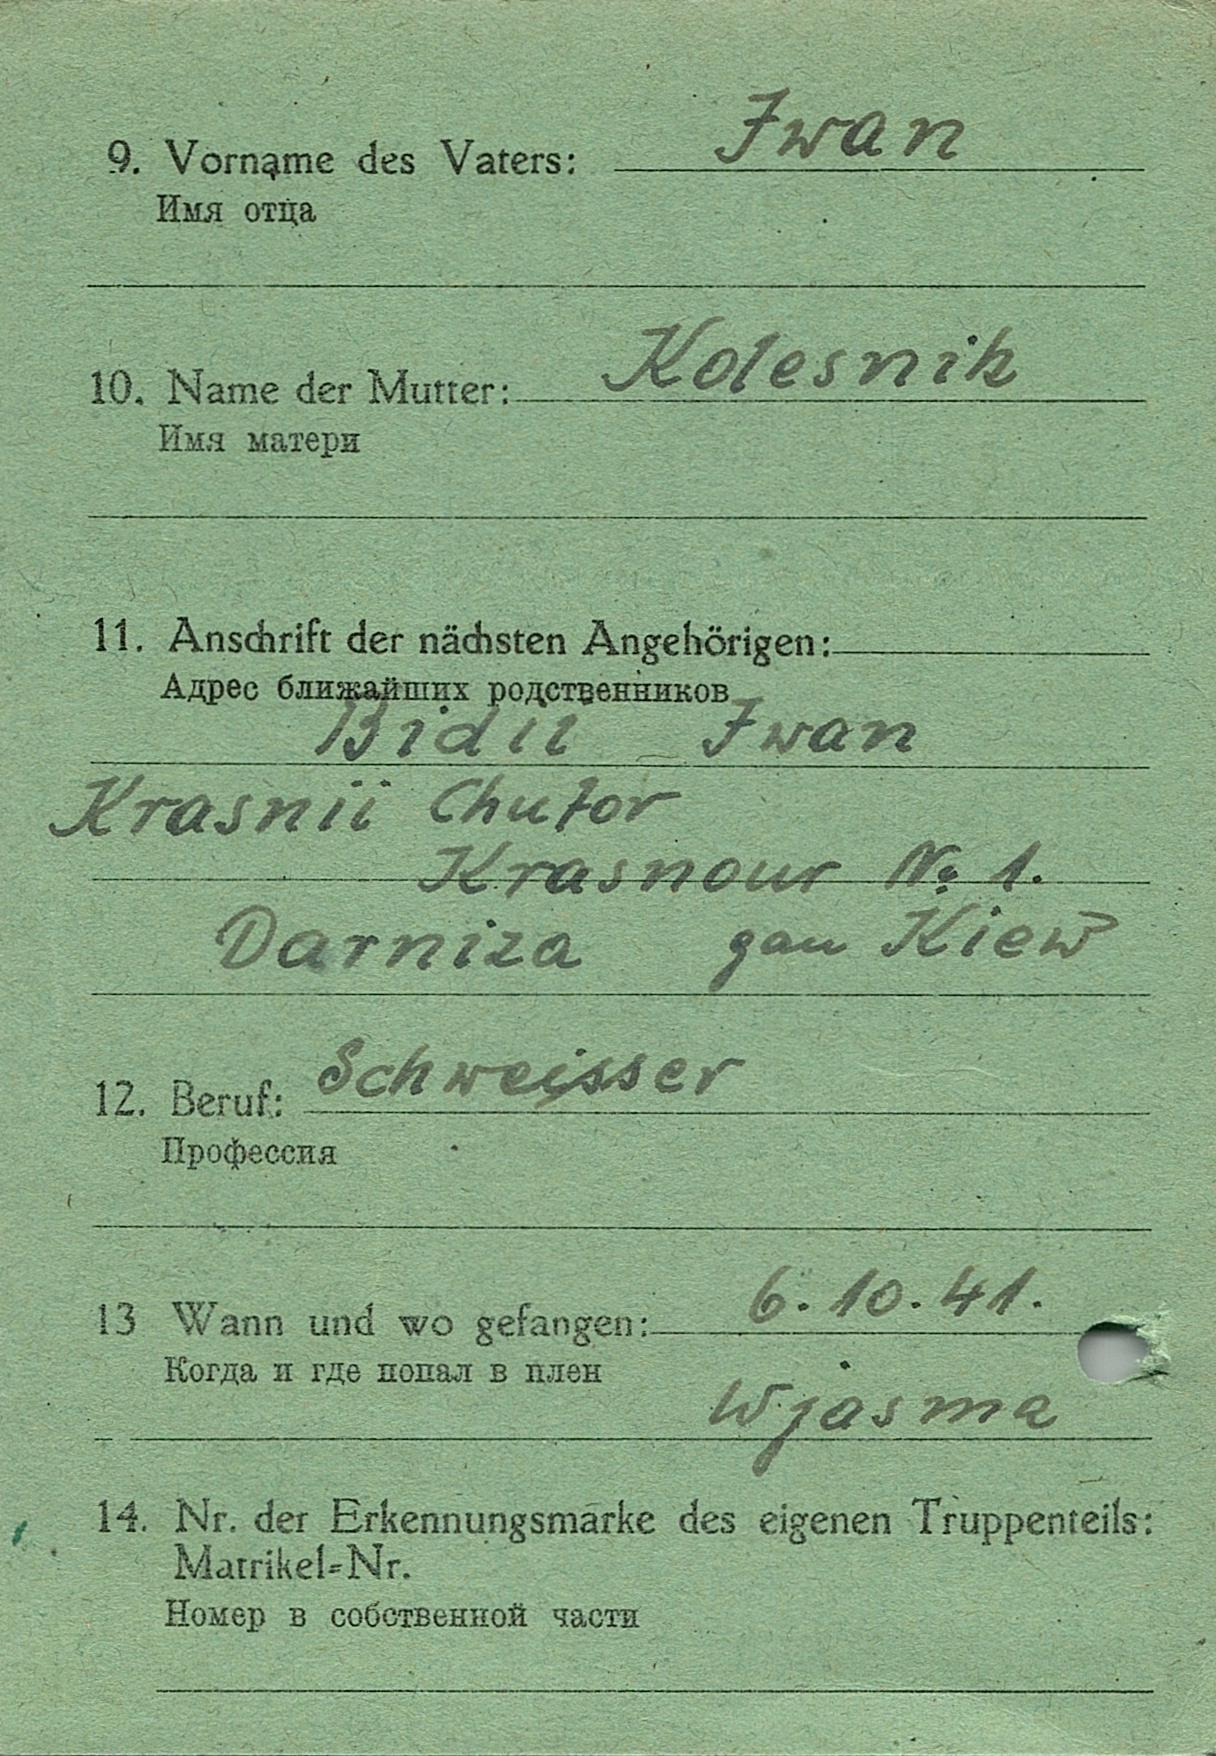 9. Vorname des Vaters: Iwan
Имя отца
10. Name der Mutter: Kolesnik
Имя матери
11. Anschrift der nächsten Angehörigen:
Адрес ближайших родственников
Bidii Iwan
Krasnii Chutor
Krasnour No 1.
Darniza gau Kiew
12. Beruf: Schweisser
Профессия
13 Wann und wo gefangen: 6.10.41.
Когда и где попал в плен
Wjasma
14. Nr. der Erkennungsmarke des eigenen Truppenteils:
Matrikel-Nr.
Номер в собственной части